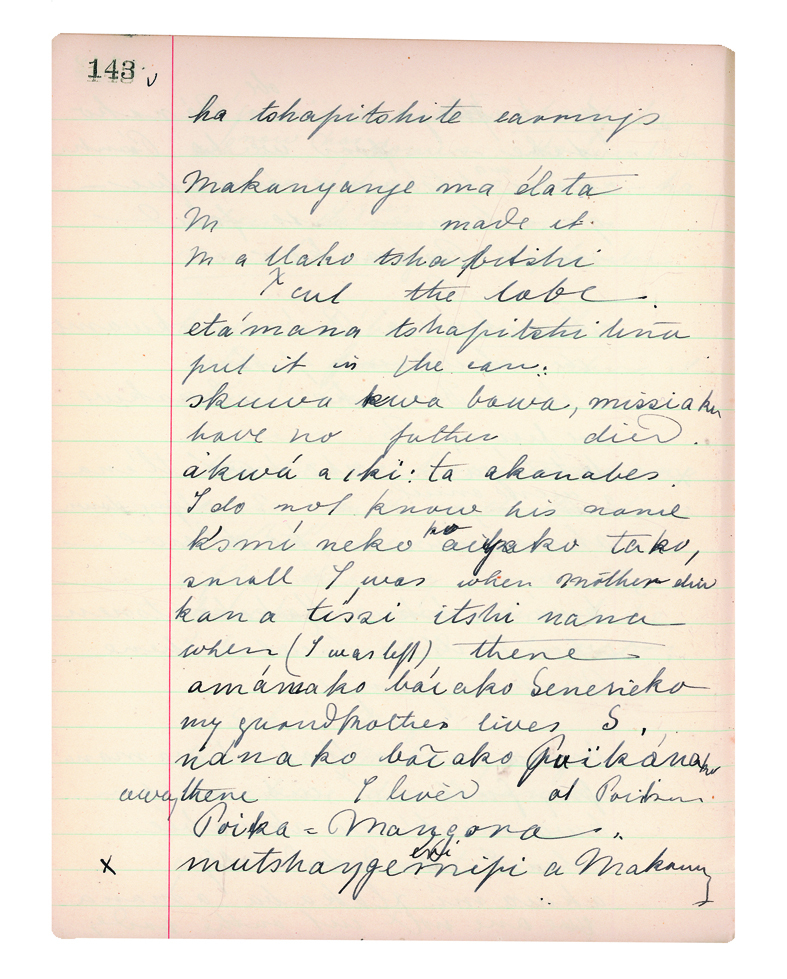 143
ha tshapitshite earrings
Makanyange ma élata
M made it.
M a llako tsha pitshi
x cut the lobe.
etámana tshapitshi
put it in the ear.
skuwa kwa bawa,
have no father died.
ákwá a ta akanabes.
I do not know his name
Ksmí neko ko tako,
small I was when mother died
kana tiszi itshi nana
when (I was left) there
amámako báiako Senerieko
my grandmother lives S.
nánako báiako
away there I lived at
Poika = Mangora
x a Makany